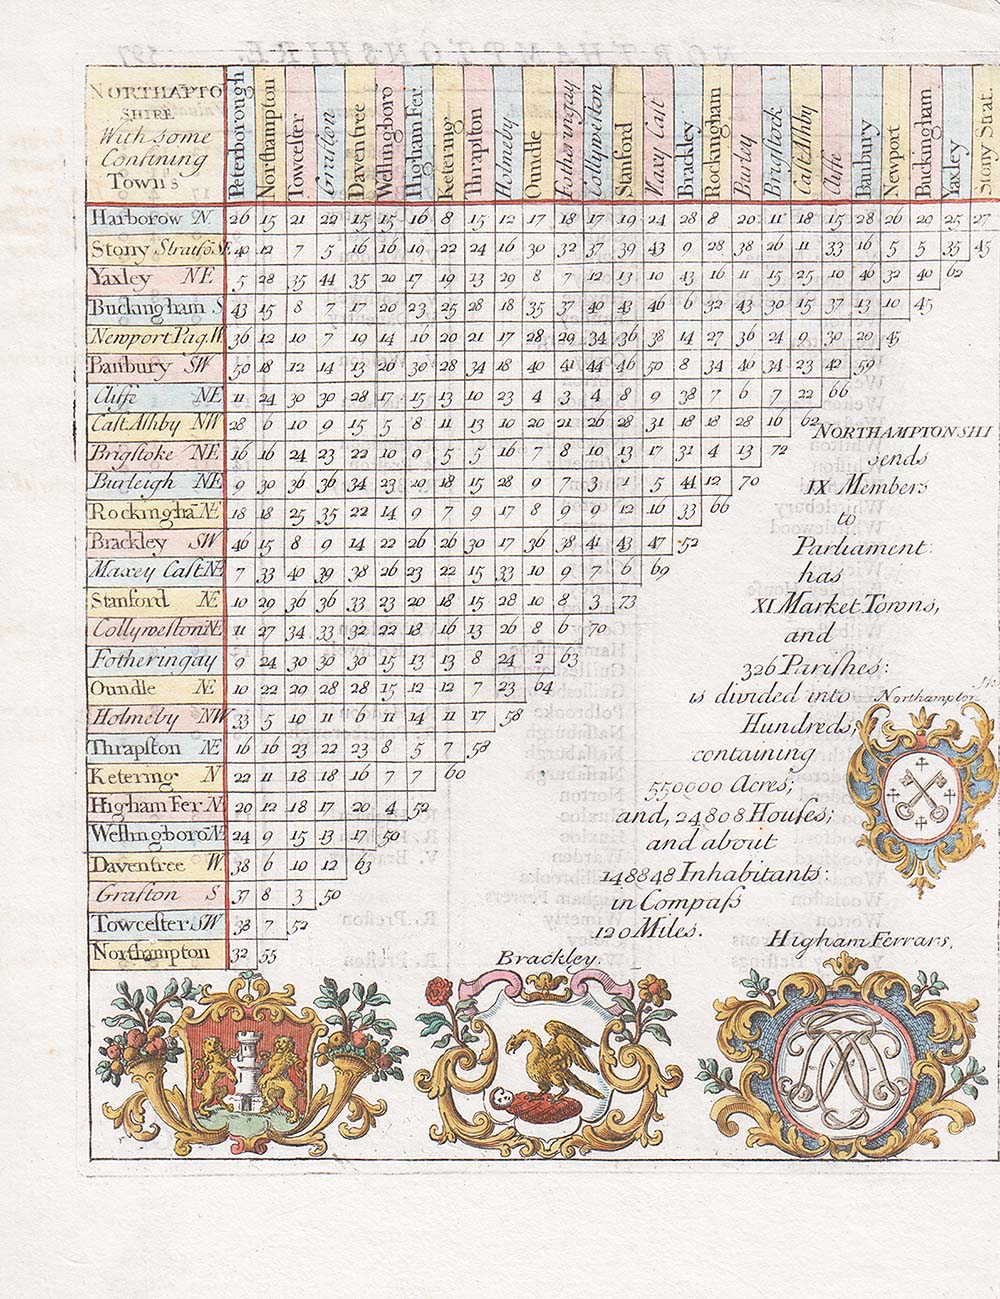 NORTHAPTO
SHIRE
With some
Confining
Towns
Peterborough
Northampton
Towcester
Grafton
Daventree
Wellingboro
Higham Fer.
Ketering
Thrapston
Holmeby
Oundle
Fotheringay
Collyweston
Stanford
Maxy Cast
Brackley
Rockingham
Burley
Brigstock
Cast Ashby
Cliffe
Banbury
Newport
Buckingham
Yaxley
Stony Strat.
Harborow N 26 15 21 22 15 15 16 8 15 12 17 18 17 19 24 28 8 20 11 18 15 28 26 20 25 27
Stony Straford SE 40 12 7 5 16 16 19 22 24 16 30 32 37 39 43 9 28 38 26 11 33 16 5 5 35 45
Yaxley NE 5 28 35 44 35 20 17 19 13 29 8 7 12 13 10 43 16 11 15 25 10 46 32 40 62
Buckingham S 43 15 8 7 17 20 23 25 28 18 35 37 40 43 46 6 32 43 30 15 37 13 10 45
Newport Pag. W. 36 12 10 7 19 14 16 20 21 17 28 29 34 36 38 14 27 36 24 9 30 20 45
Banbury SW 50 18 12 14 13 26 30 28 34 18 40 41 44 46 50 8 34 40 34 23 42 59
Cliffe NE 11 24 30 30 28 17 15 13 10 23 4 3 4 8 9 38 7 6 7 22 66
Cast Ashby NW 28 6 10 9 15 5 8 11 13 10 20 21 26 28 31 18 18 28 16 62
Brigstoke NE 16 16 24 23 22 10 9 5 5 16 7 8 10 13 17 31 4 13 72
Burleigh NE 9 30 36 36 34 23 20 18 15 28 9 7 3 1 5 44 12 70
Rockinghā NE 18 18 25 35 22 14 9 7 9 17 8 9 9 12 16 33 66
Brackley SW 46 15 8 9 14 22 26 26 30 17 36 38 41 43 47 52
Maxey Cast NE 7 33 40 39 38 26 23 22 15 33 10 9 7 6 69
Stanford NE 10 29 36 36 33 23 20 18 15 28 10 8 3 73
Collyweston NE 11 27 34 33 32 22 18 16 13 26 8 6 70
Fotheringay 9 24 30 30 30 15 13 13 8 24 2 63
Oundle NE 10 22 29 28 28 15 12 12 7 23 64
Holmeby NW 33 5 10 11 6 11 14 11 17 58
Thrapston NE 16 16 23 22 23 8 5 7 58
Ketering N 22 11 18 18 16 7 7 60
Higham Fer NE 20 12 18 17 20 4 52
Wellingboro NE 24 9 15 13 17 50
Daventree W. 38 6 10 12 63
Grafton S 37 8 3 50
Towcester SW 38 7 52
Northampton 32 55
NORTHAMPTONSHI
sends
IX Members
to
Parliament:
has
XI Market Towns,
and
326 Parishes:
is divided into
Hundreds;
containing
550000 Acres;
and, 24808 Houses;
and about
148848 Inhabitants:
in Compass
120 Miles.
Northampton
Brackley.
Higham Ferrars.